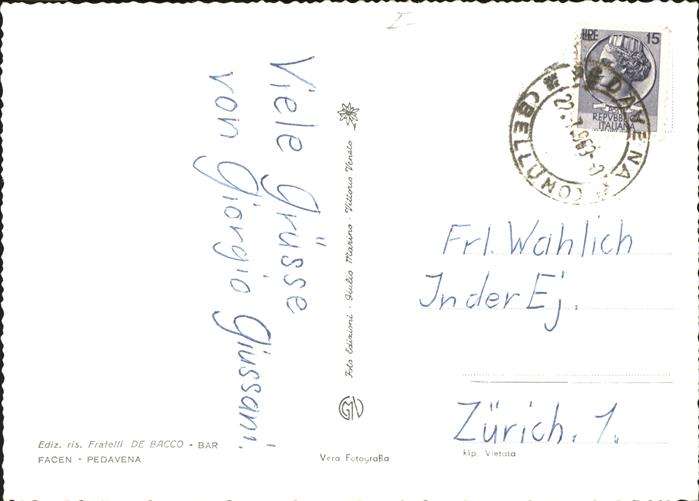 Viele Grüsse
von Giorgio Giussani.
Foto Edizioni - Giulio Marino - Vittorio Veneto
LIRE 15
REPVBBLICA
ITALIANA
(BELLUNO)
Frl. Wahlich
In der Ej.
Zürich. 1.
Ediz. ris. Fratelli DE BACCO - BAR
FACEN - PEDAVENA
Vera Fotografia
Rip. Vietata